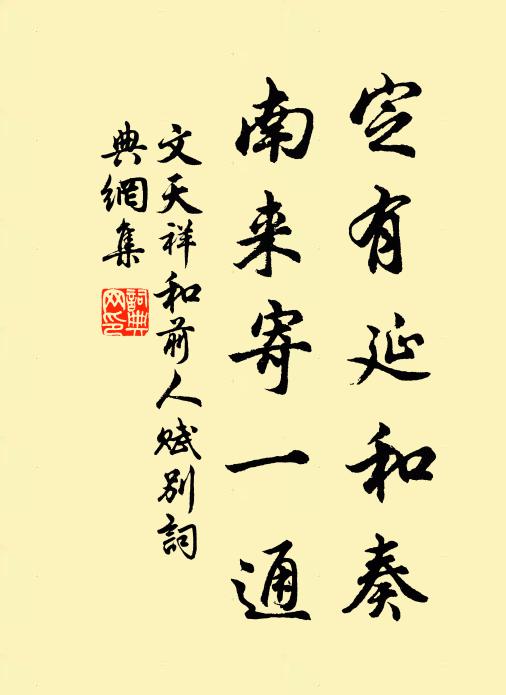 定有延和奏
南来寄一通
文天祥和前人赋别詞
典網集
詞典
网印